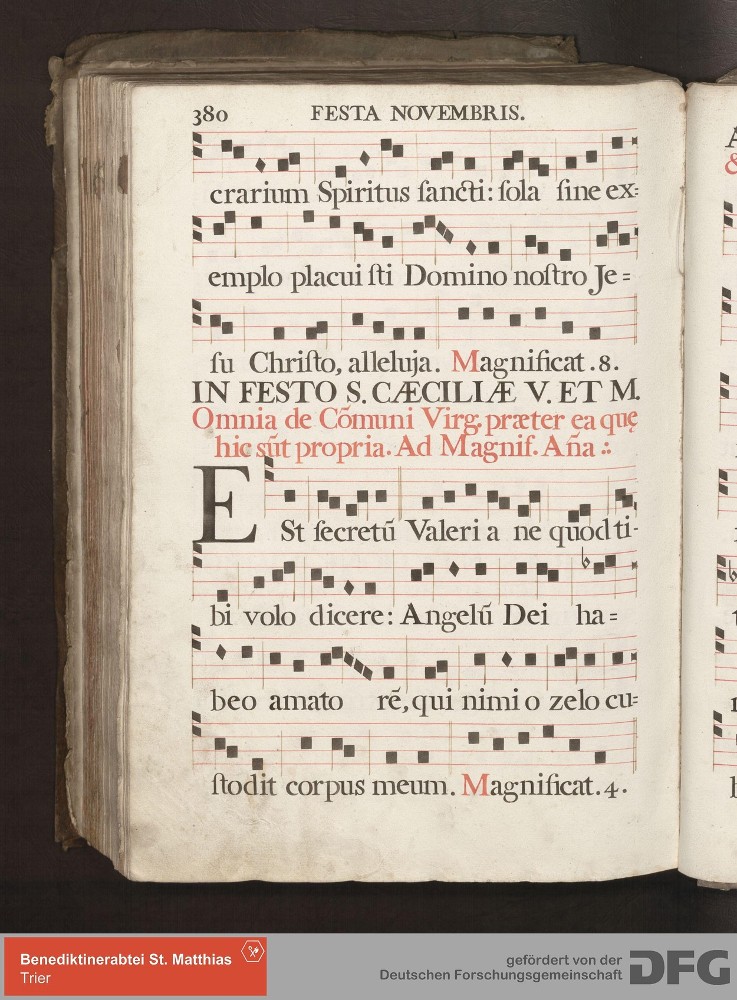 380 FESTA NOVEMBRIS.
crarium Spiritus ſancti: ſola ſine ex=
emplo placui ſti Domino noſtro Je=
ſu Chriſto, alleluja. Magnificat .8.
IN FESTO S. CÆCILIÆ V. ET M.
Omnia de Cõmuni Virg. præter ea quę
hic sũt propria. Ad Magnif. Aña :.
ESt ſecretũ Valeri a ne quod ti-
bi volo dicere: Angelũ Dei ha=
beo amato rẽ, qui nimi o zelo cu=
ſtodit corpus meum. Magnificat. 4.
Benediktinerabtei St. Matthias
Trier
gefördert von der
Deutschen Forschungsgemeinschaft
DFG